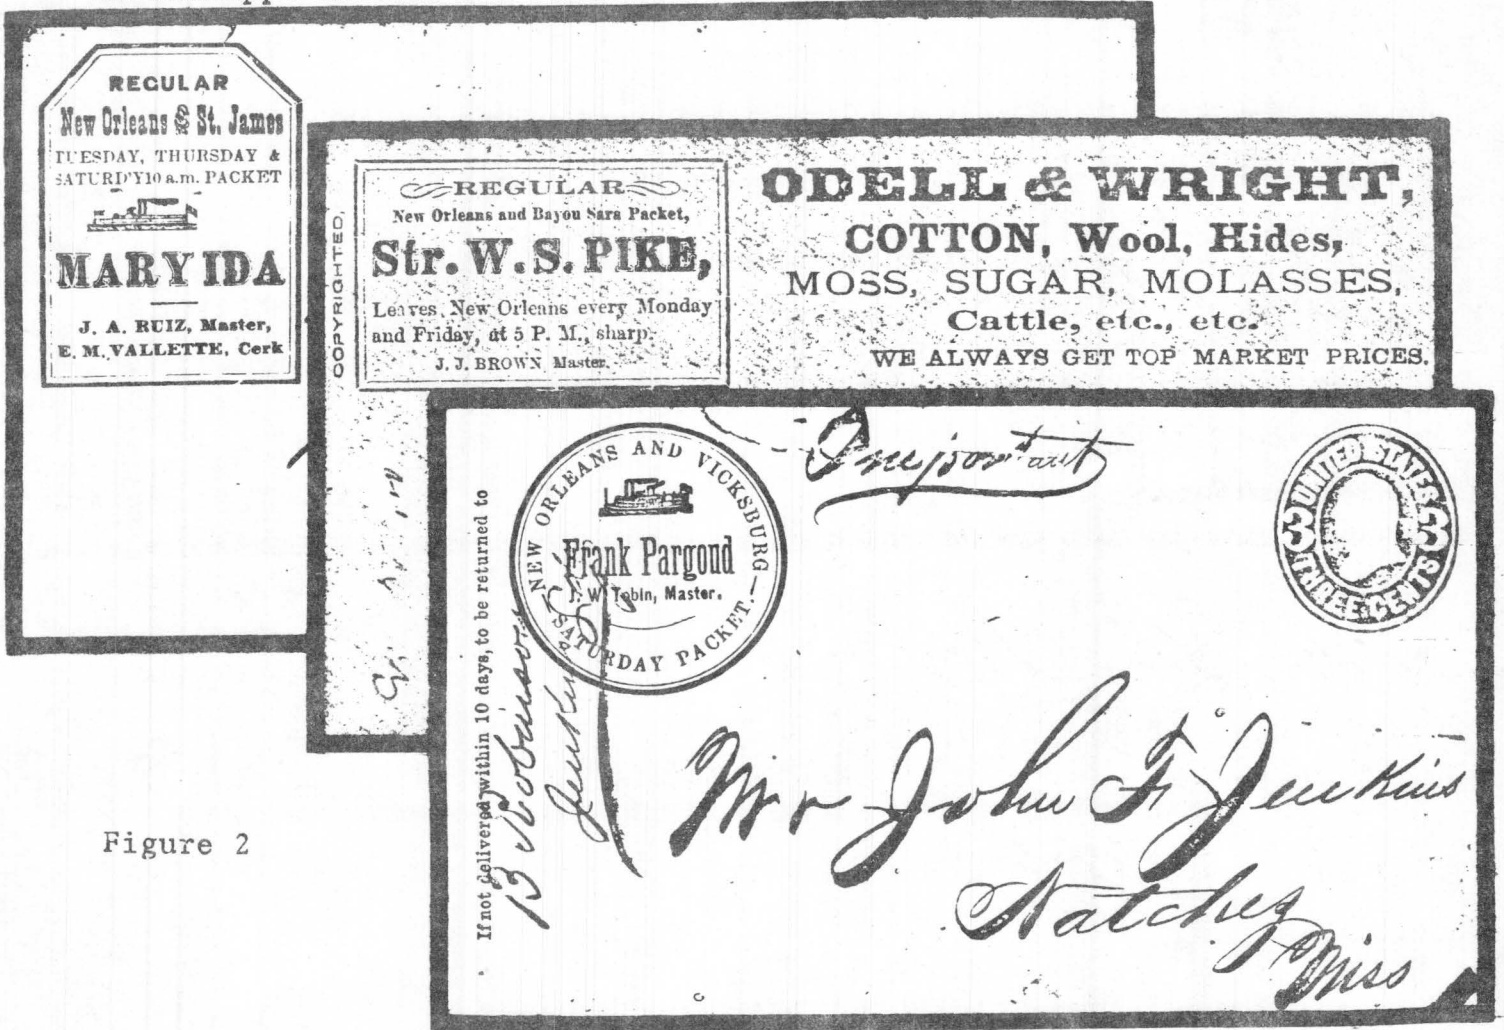 REGULAR
New Orleans & St. James
TUESDAY, THURSDAY &
SATURD'Y 10 a.m. PACKET
MARY IDA
J. A. RUIZ, Master,
E. M. VALLETTE, Cerk
COPYRIGHTED.
REGULAR
New Orleans and Bayou Sara Packet,
Str. W. S. PIKE,
Leaves New Orleans every Monday
and Friday, at 5 P. M., sharp.
J. J. BROWN Master.
ODELL & WRIGHT,
COTTON, Wool, Hides,
MOSS, SUGAR, MOLASSES,
Cattle, etc., etc.
WE ALWAYS GET TOP MARKET PRICES.
If not delivered within 10 days, to be returned to
B Robinson
Jenkins
NEW ORLEANS AND VICKSBURG
Frank Pargoud
J. W. Tobin, Master.
SATURDAY PACKET.
Important
UNITED STATES
3 3
THREE CENTS
Mr John F Jenkins
Natchez
Miss
Figure 2